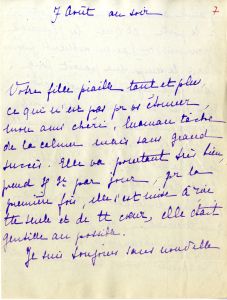 7 Août au soir
7
Votre fille piaille tant et plus,
ce qui n'est pas pr vs étonner,
mon ami chéri, maman tâche
de la calmer mais sans grand
succès. Elle va pourtant très bien,
prend gr par jour, pr la
première fois, elle s'est mise à rire
tte seule et de tt cœur, elle était
gentille au possible.
Je suis toujours sans nouvelle